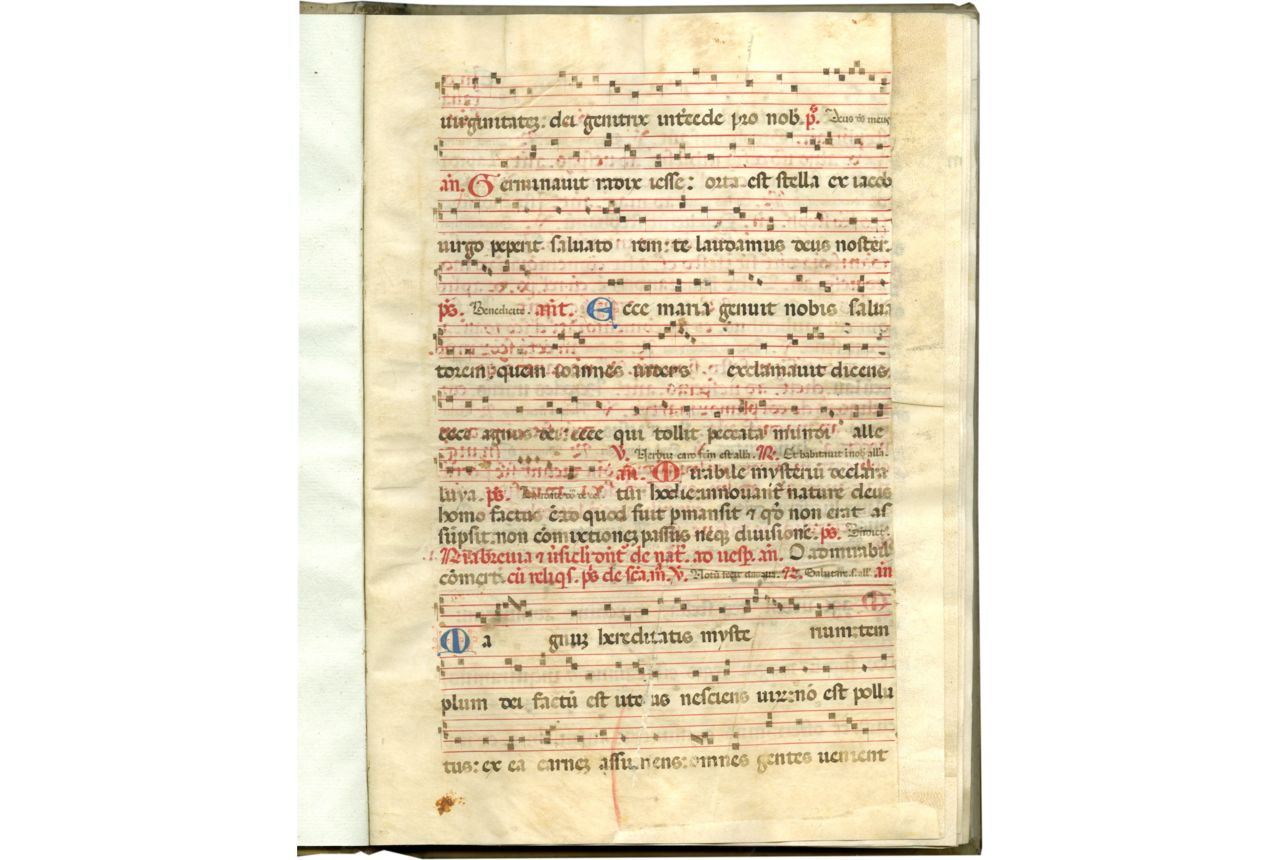 uirginitatez: dei genitrix intercede pro nob. ps. Deus ds meus
an. Germinauit radix iesse: orta est stella ex iacob
uirgo peperit saluato rem: te laudamus deus noster.
ps. Benedicite. ant. Ecce maria genuit nobis salua
torem: quem ioannes uidens exclamauit dicens
ecce agnus dei: ecce qui tollit peccata mundi alle
V. Verbuz caro fcm est alla. R. Et habitauit in nob. alla.
an. Mirabile mysteriū declara
luya. ps. tur hodie: innouant̄ nature deus
homo factus ē: id quod fuit pmansit ⁊ qd non erat as
sūpsit. non cōmixtionez passus neqz diuisionē. ps.
Rn̄a breuia ⁊ ūsiculi dn̄t de nat. ad uesp. an. O admirabile
cōmerc. cū reliqs. ps de scā. m. V. Notū fecit R. Salutare s. all. an
Ma gnuz hereditatis myste rium: tem
plum dei factū est uterus nesciens uirz: nō est pollu
tus: ex ea carnez assumens: omnes gentes uenient